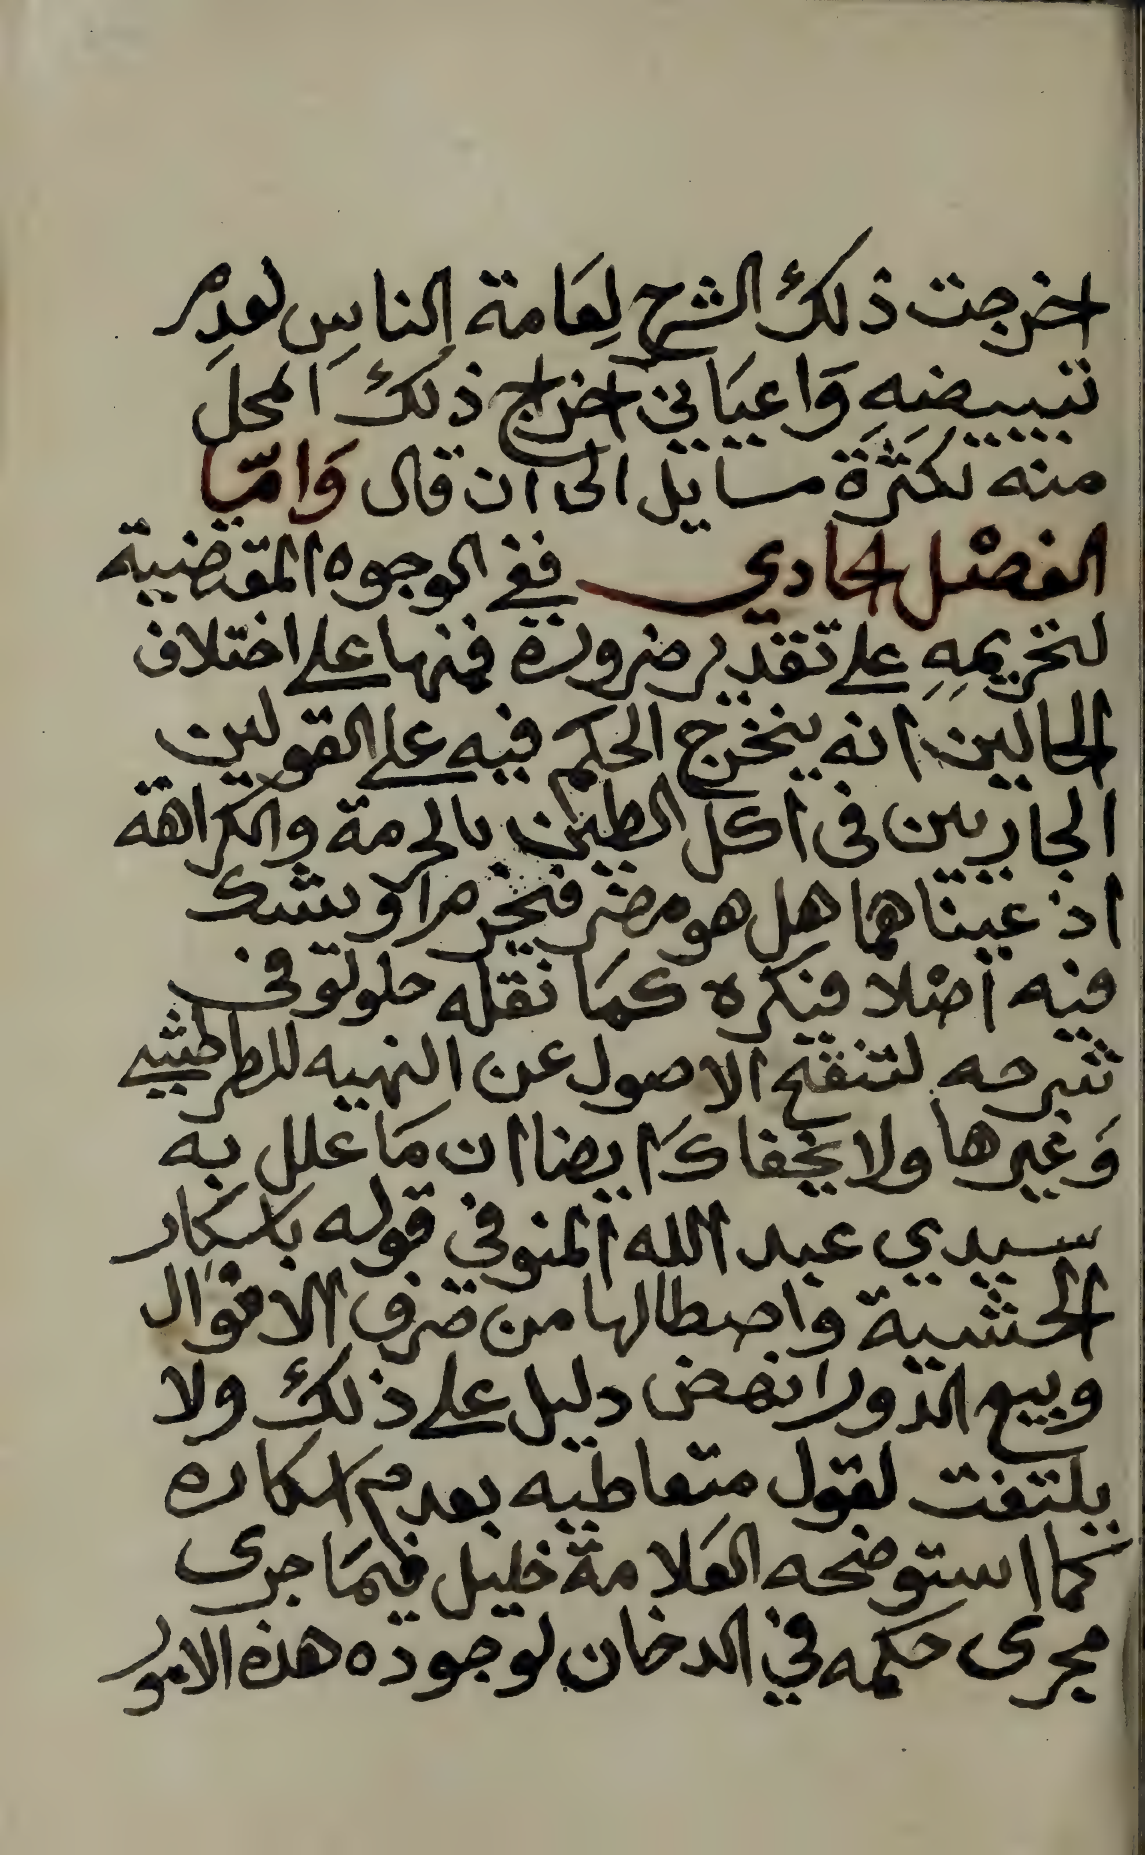 اخرجت ذلك الشرح لِعَامة الناسِ لعدِم
تبييضهِ وَاعيَاني اخراج ذلك المحل
منه لكَثرَة مسايل الى ان قال وَامّا
الفصْل الحادي ففي الوجوه المقتضية
لتحريمهِ على تقدير ضرورة فمنها على اختلاف
الحالين انه يتخرج الحكم فيه على القولين
الجاريين في اكل الطين بالحرمة والكراهة
اذ عينا هما هل هو مضر فيحرم او يشك
فيه اصْلا فيكره كمَا نقله حلولو في
شرحه لتنقيح الاصول عن النهيه للطرطشي
وَغيرها ولا يخفاكَ ايضا ان مَا علل به
سيدي عبد الله المنوفي قوله باسكار
الحشية واصطالها من صرف الاقوال
وبيع الدور انهض دليل على ذلك ولا
يلتفت لقول متعاطيه بعدم اسكاره
كما استوضحه العَلامة خليل فيمَا جرى
مجرى حكمه في الدخان لوجوده هذه الامور